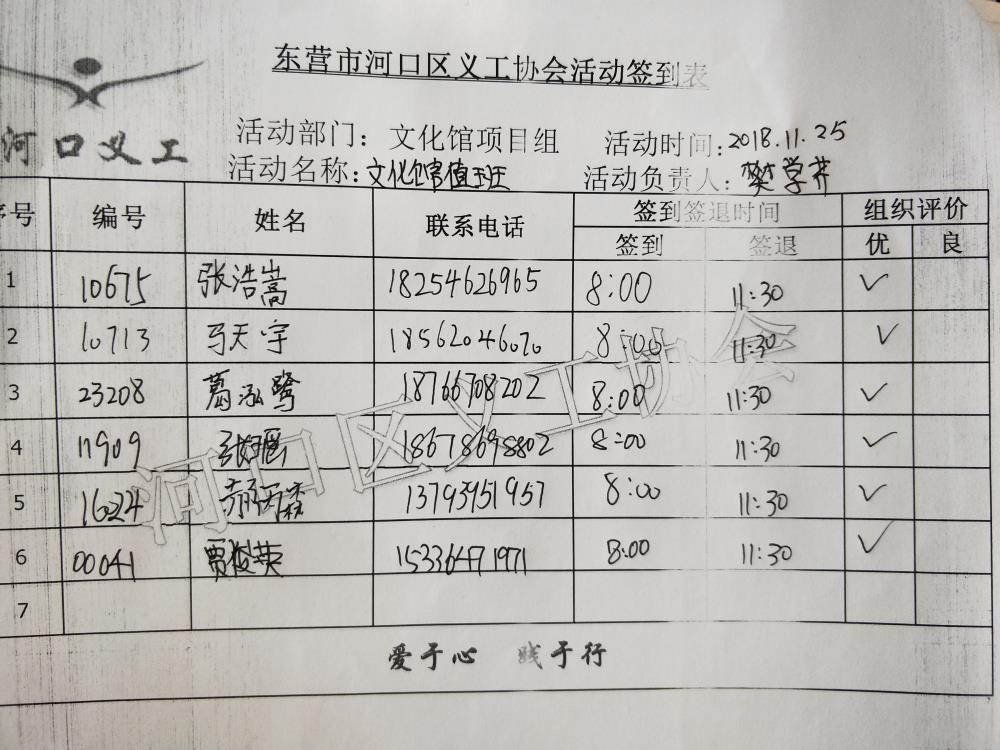 东营市河口区义工协会活动签到表
河口义工
活动部门：文化馆项目组 活动时间：2018.11.25
活动名称：文化馆值班 活动负责人：樊学芹
序号 编号 姓名 联系电话 签到签退时间 组织评价
签到 签退 优 良
1 10675 张浩嵩 18254626965 8:00 11:30 ✓
2 10713 马天宇 18562046070 8:00 11:30 ✓
3 23208 葛泓鹭 18766708202 8:00 11:30 ✓
4 11909 18678698802 8:00 11:30 ✓
5 1624 13793951957 8:00 11:30 ✓
6 00041 贾俊英 15336471971 8:00 11:30 ✓
7
河口区义工协会
爱于心 践于行